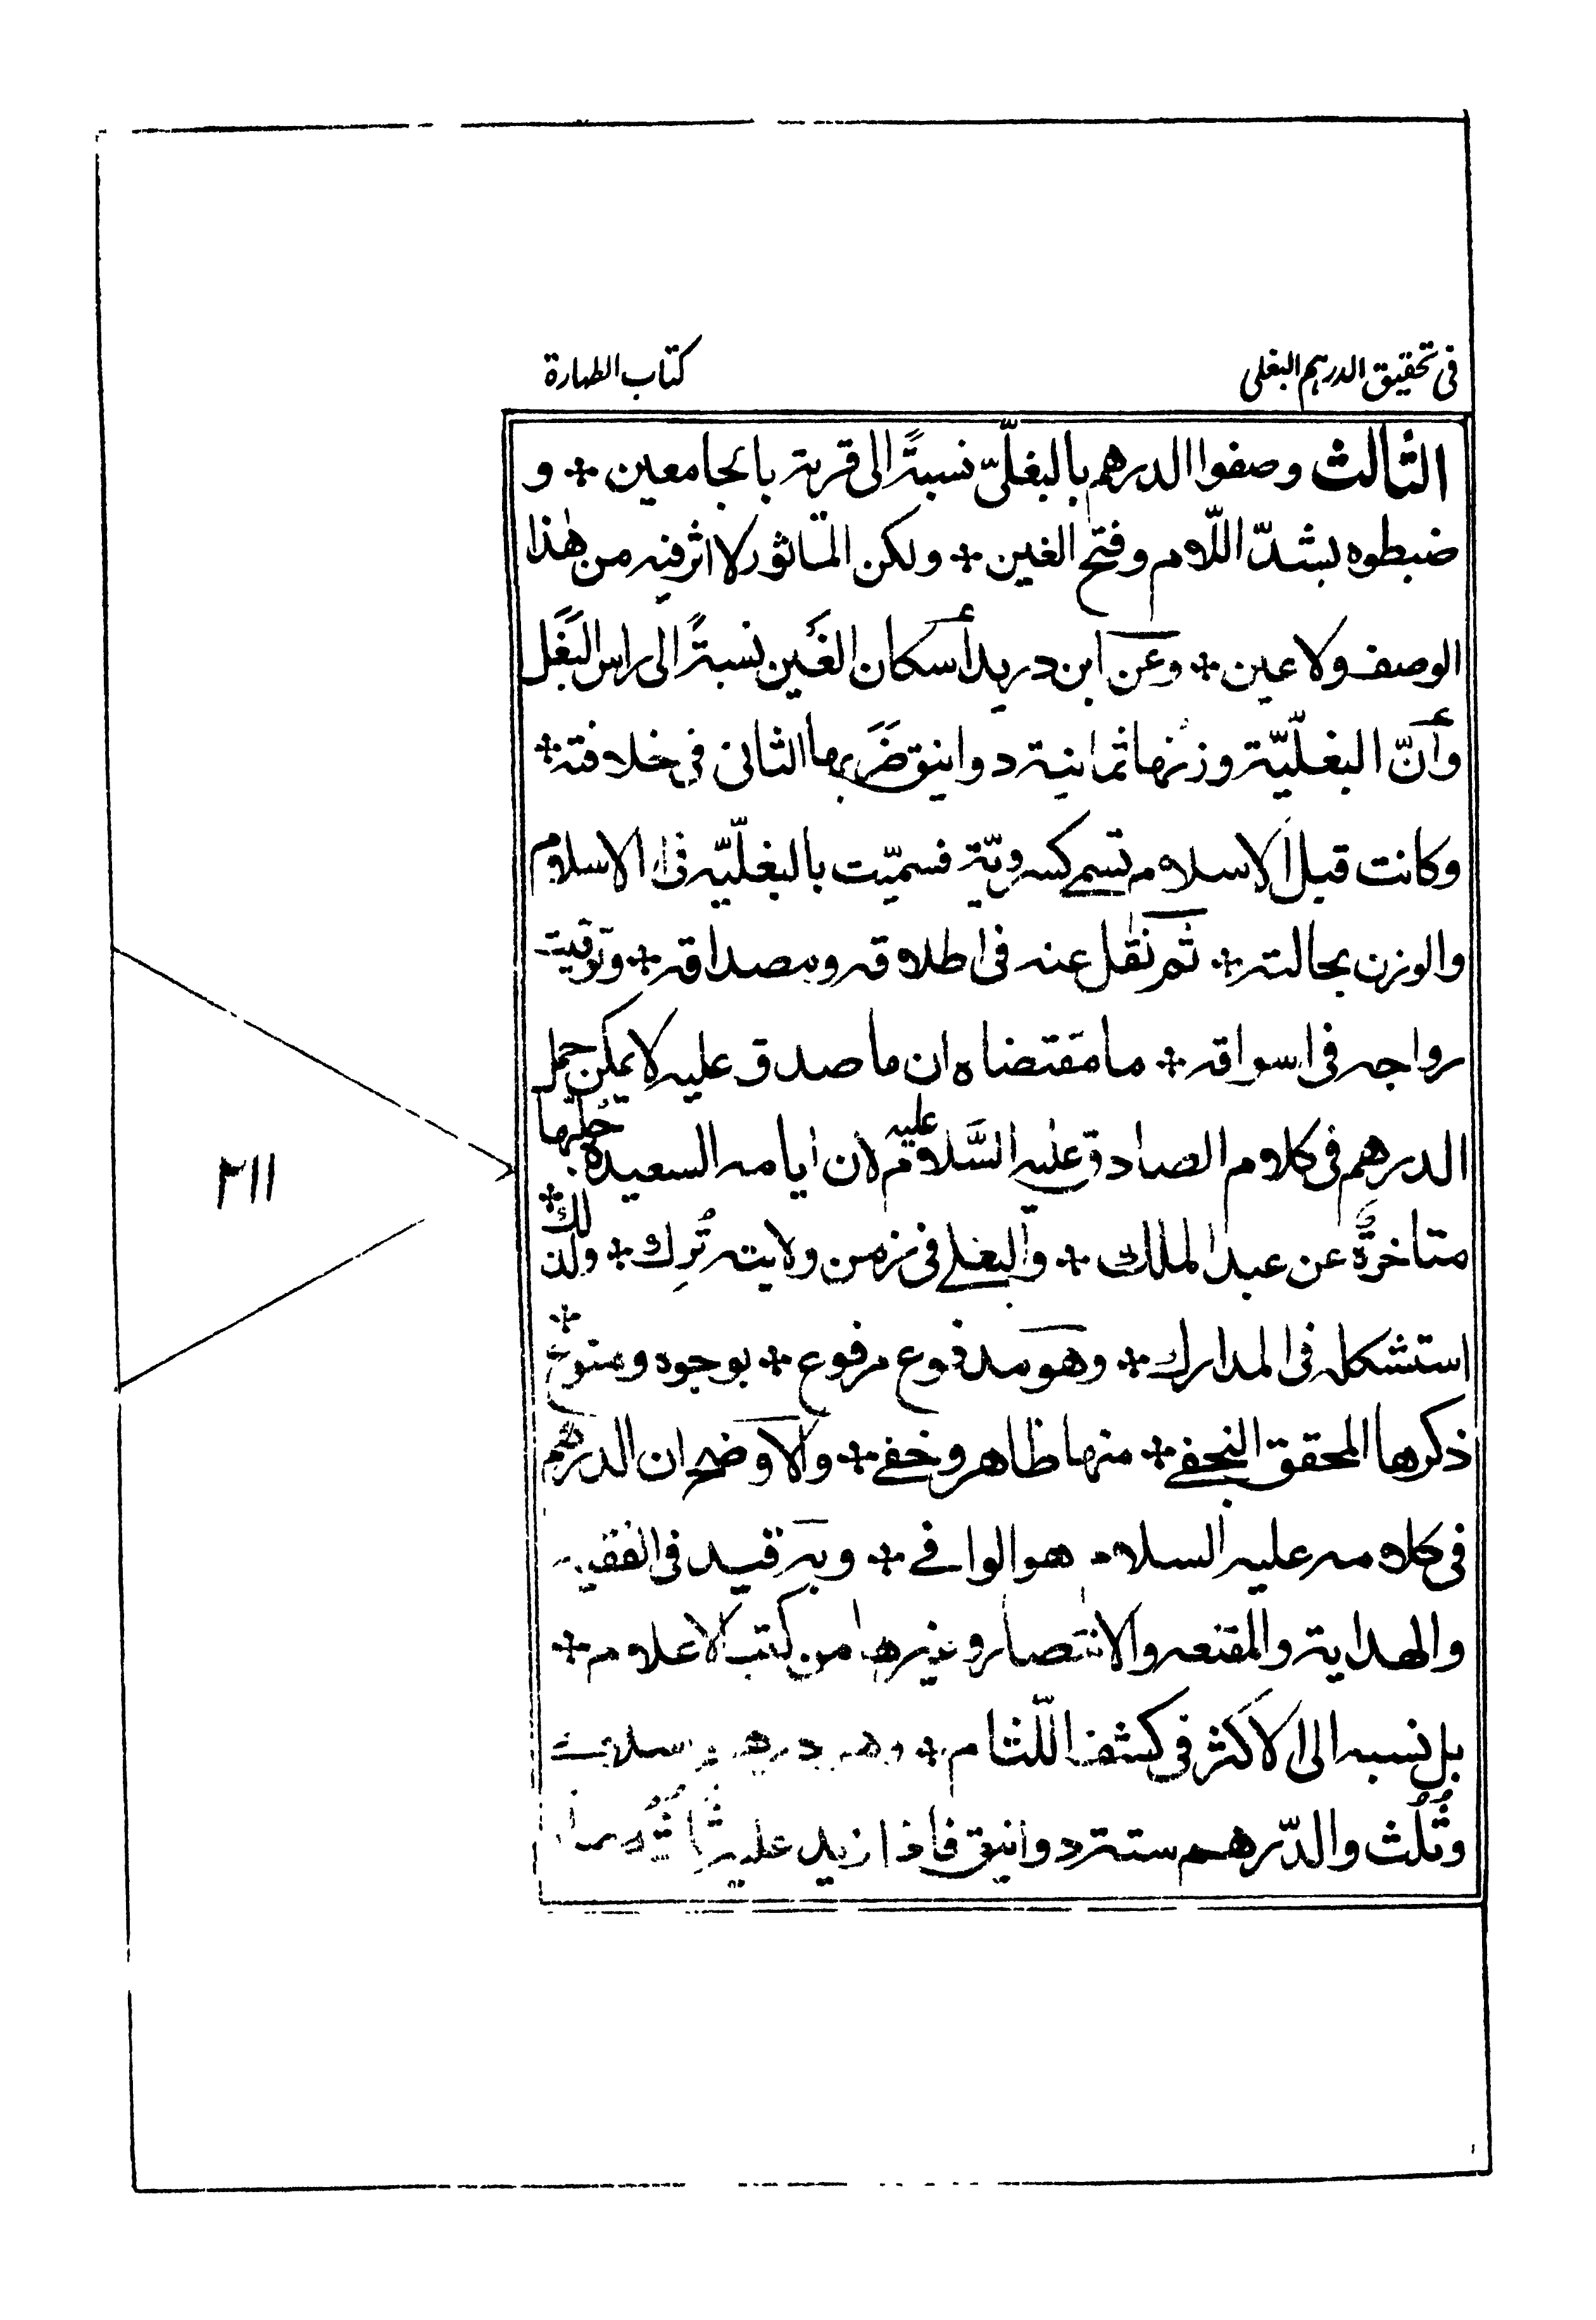 فی تحقیق الدرهم البغلی
کتاب الطهارة
الثالث وصفوا الدرهم بالبغلّیّ نسبةً الی قریة بالجامعین ⁘ و
ضبطوه بشدّ اللّام وفتح الغین ⁘ ولکن المّاثور لا اثر فیه من هٰذا
الوصف ولا عین ⁘ وعن ابن درید أسکان الغَین نسبةً الی راس البَغَل
وأنّ البغلّیّة وزنها ثمانیة دوانیق ضَرَبها الثانی فی خلافته ⁘
وکانت قبل الاسلام تسمی کسرویّة فسمیّت بالبغلّیّه فی الاسلام
والوزن بحالته ⁘ ثم نقل عنه فی اطلاقه ومصداقه ⁘ وتوقیت
رواجه فی اسواقه ⁘ ما مقتضاه ان ما صدق علیه لا یمکن حمل
الدرهم فی کلام الصادق علیه السَّلام علیه لان ایامه السعیدة
متاخرةً عن عبد الملک ⁘ والبغلی فی زمن ولایته تُرِک ⁘ ولذلک ⁘
استشکله فی المدارک ⁘ وهو مدفوع مرفوع ⁘ بوجوه ومنوع ⁘
ذکرها المحقق النجفی ⁘ منها ظاهر وخفی ⁘ والاوضح ان الدرهم
فی کلامه علیه السلام هو الوافی ⁘ وبه قید فی الفقیه
والهدایة والمقنعه والانتصار وغیرها من کتب الاعلام ⁘
بل نسبه الی الاکثر فی کشف اللّثام ⁘ وهو درهم و
وثُلُث والدّرهم ستة دوانیق فاذا زید علیه
۳۱۱